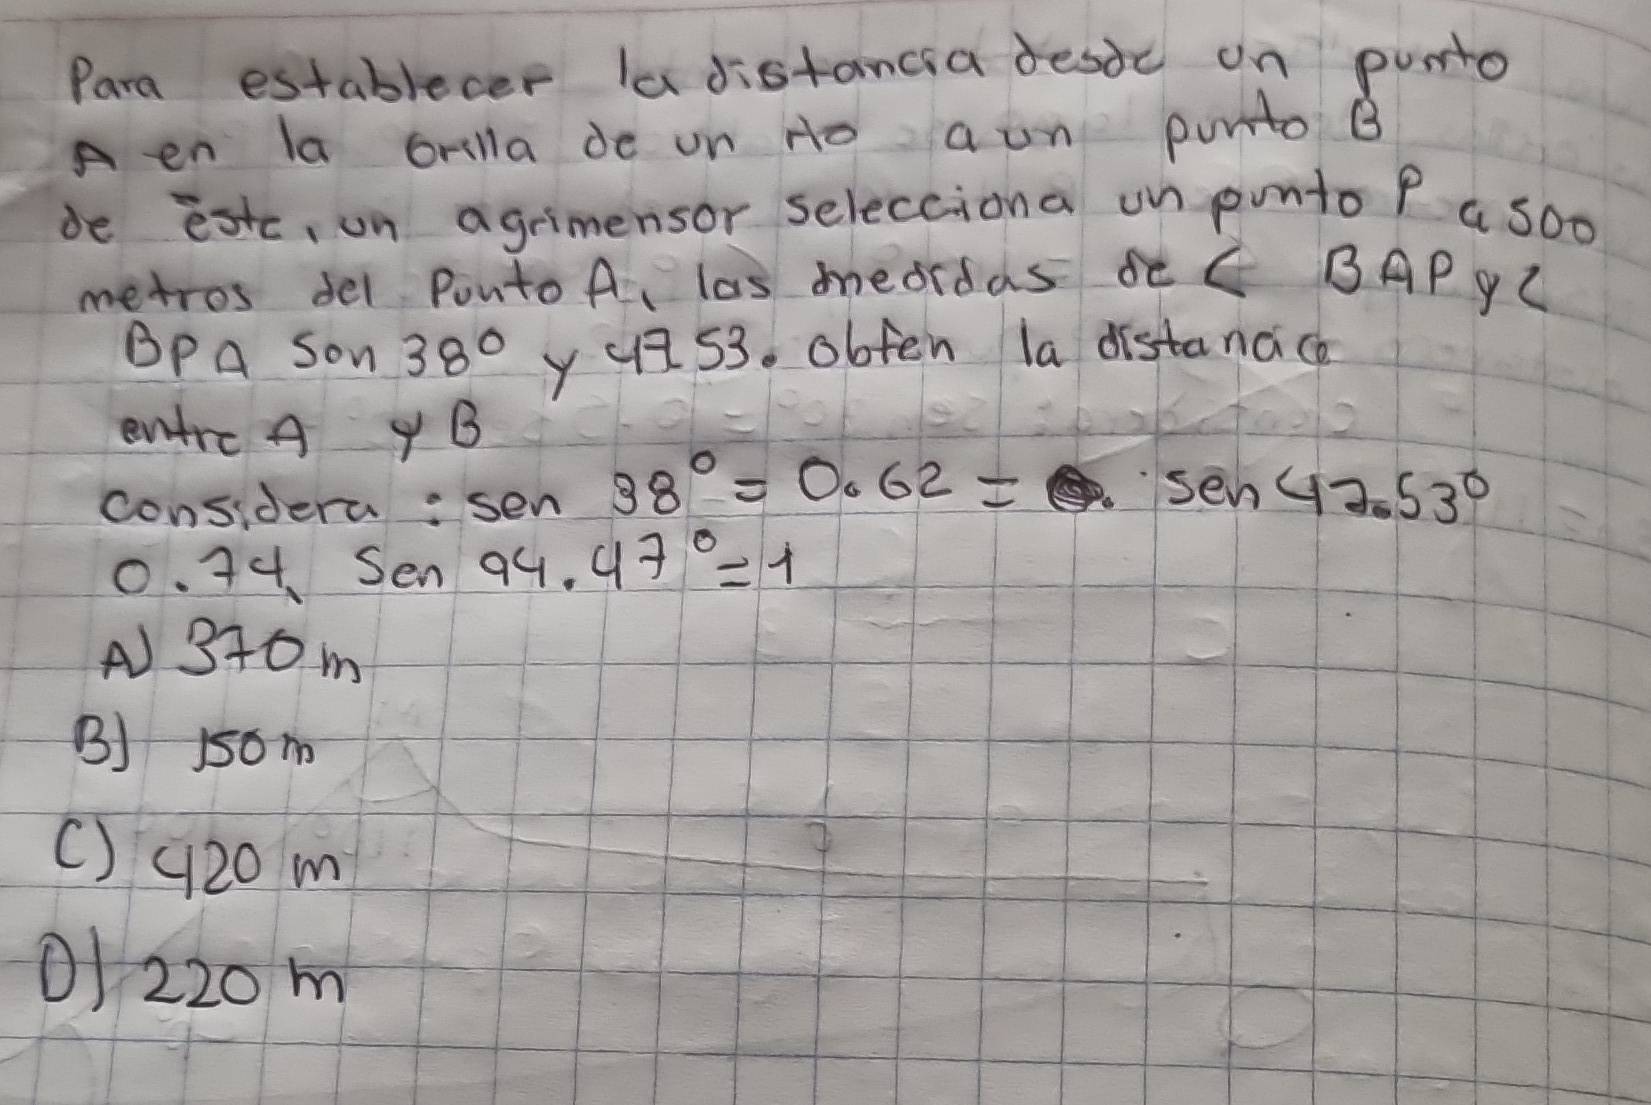 Para establecer la distancia desde un punto
A en la orilla de un rio a un punto B
de éste, un agrimensor selecciona un punto P a 500
metros del Punto A, las medidas de < BAP y <
BPA son 38° y 47.53. obten la distancia
entre A y B
considera : sen 38° = 0.62 = sen 47.53°
0.74, Sen 94.47° = 1
A) 370 m
B) 150 m
C) 420 m
D) 220 m